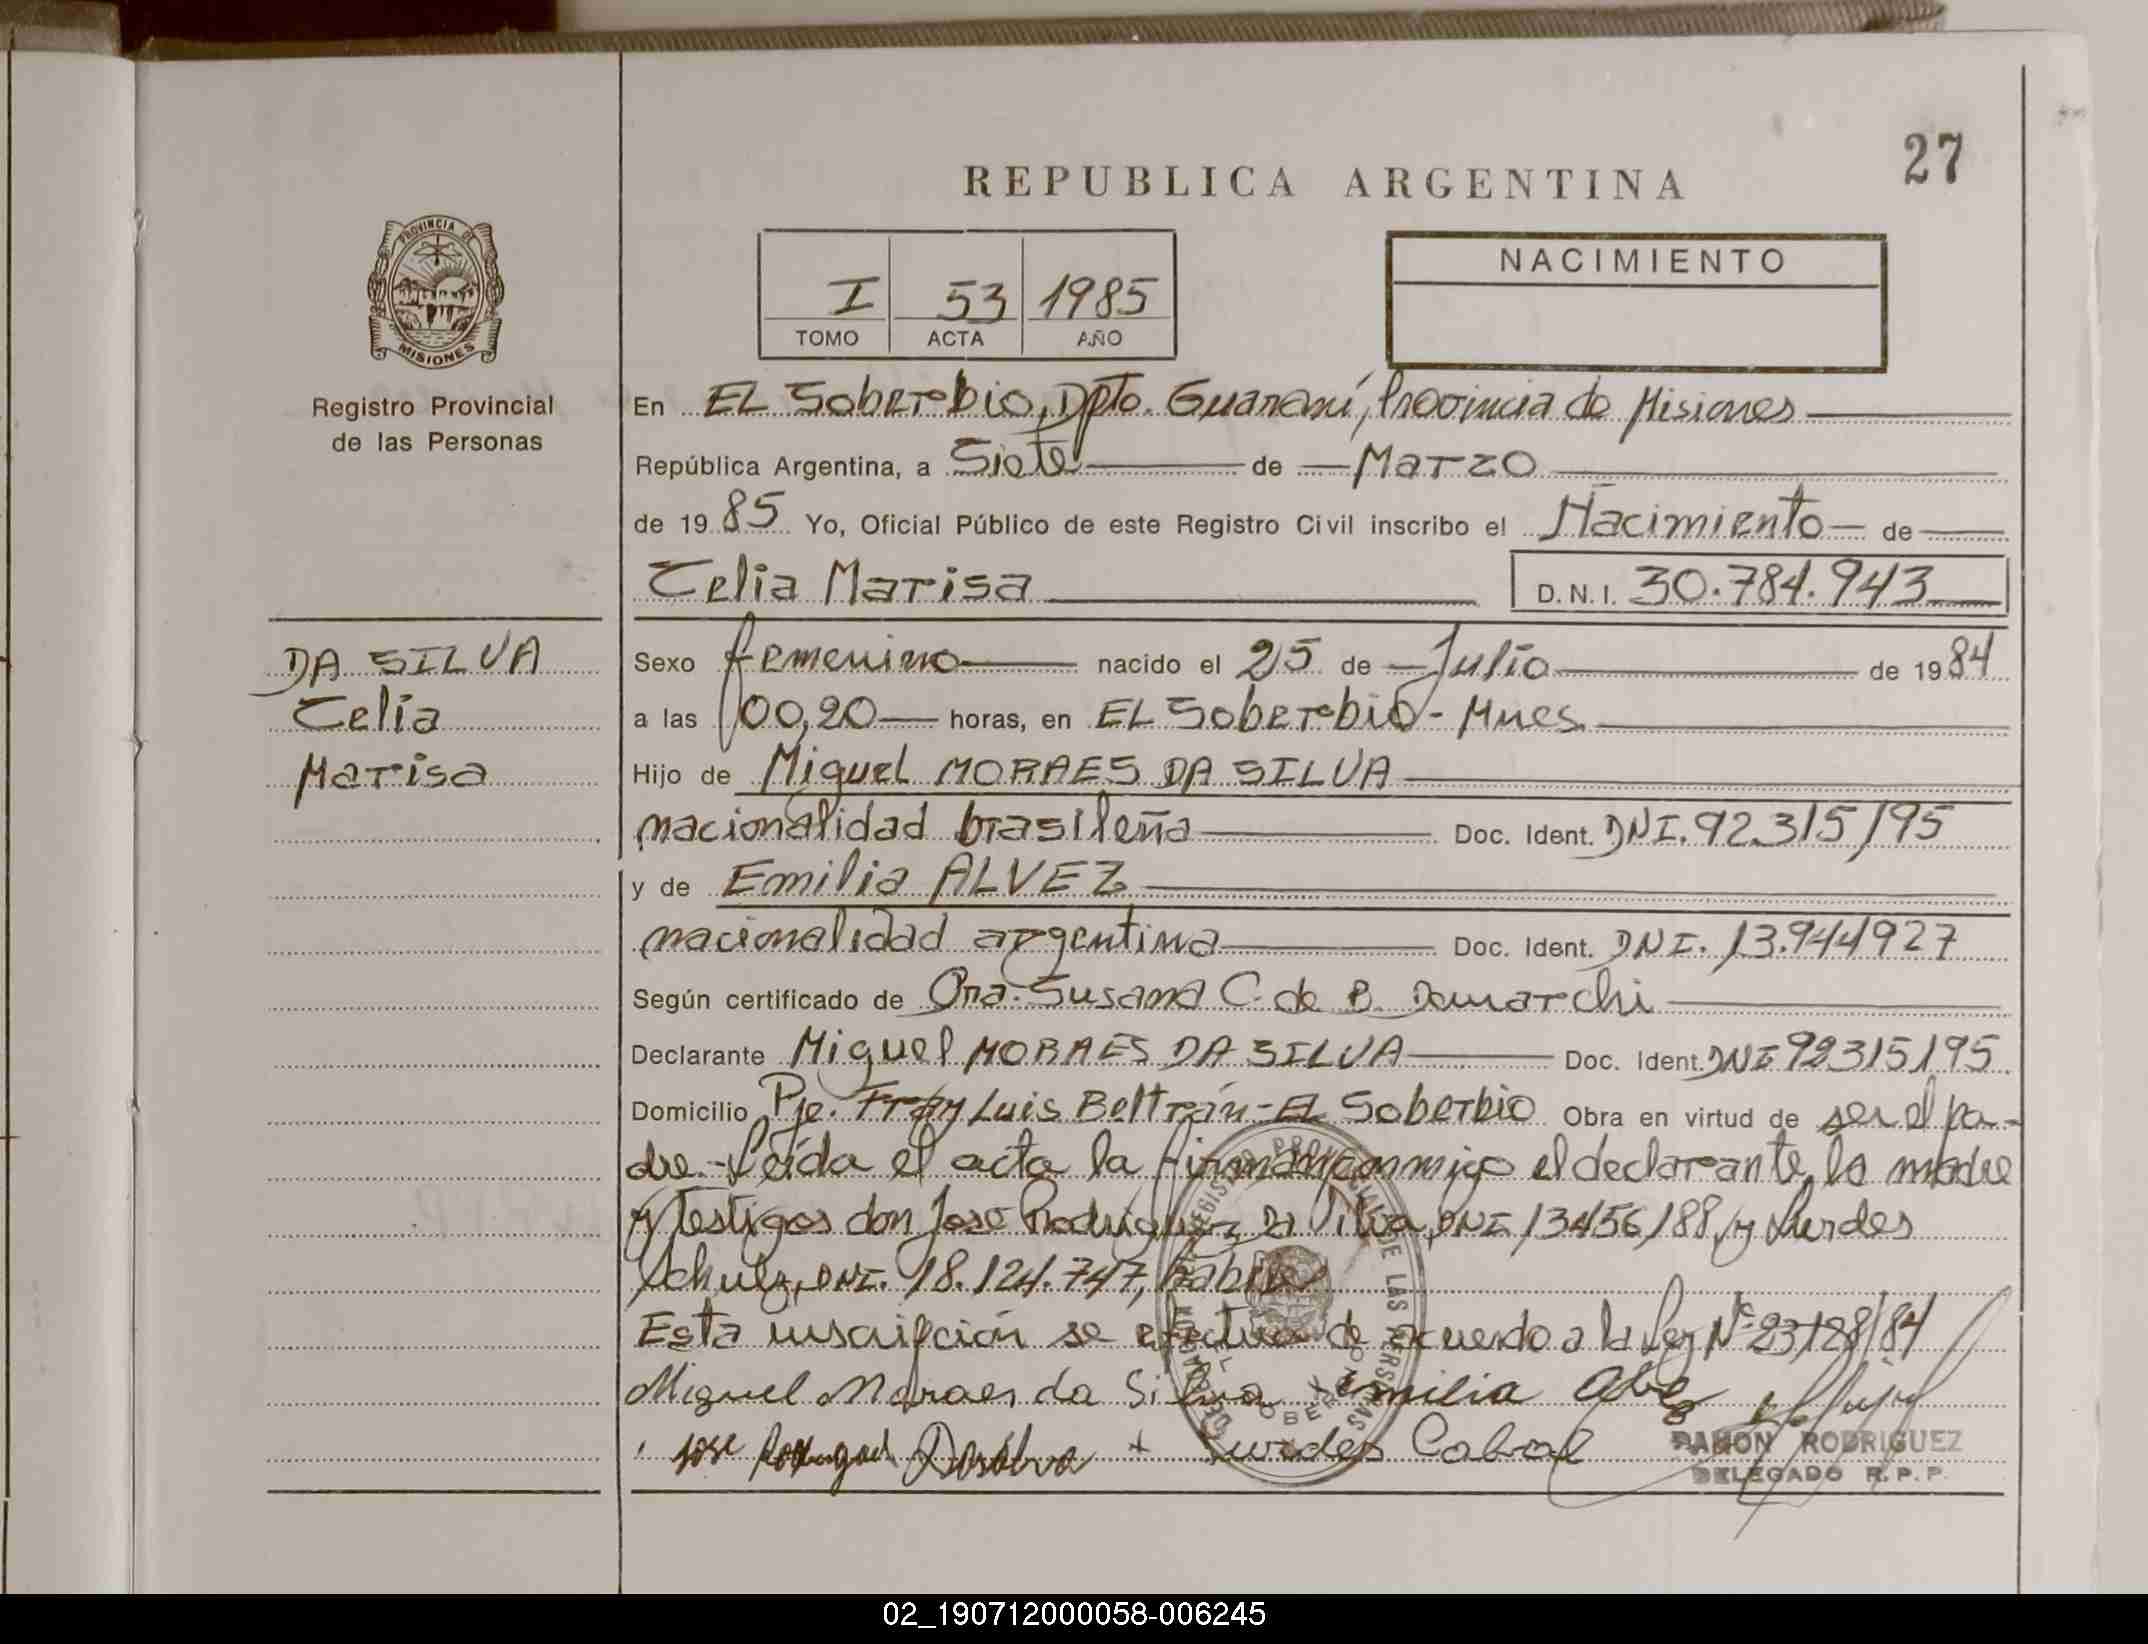 27
REPUBLICA ARGENTINA
PROVINCIA DE
MISIONES
Registro Provincial
de las Personas
I 53 1985
TOMO ACTA AÑO
NACIMIENTO
En EL Soberbio, Dpto. Guaraní, Provincia de Misiones
República Argentina, a Siete de Marzo
de 1985 Yo, Oficial Público de este Registro Civil inscribo el Nacimiento de
Celia Marisa D.N.I. 30.784.943
DA SILVA
Celia
Marisa
Sexo femenino nacido el 25 de Julio de 1984
a las 00,20 horas, en EL Soberbio - Mnes.
Hijo de Miguel MORAES DA SILVA
nacionalidad brasileña Doc. Ident. DNI. 92315195
y de Emilia ALVEZ
nacionalidad argentina Doc. Ident. DNI. 13.944927
Según certificado de Dra. Susana C. de B. Demarchi
Declarante Miguel MORAES DA SILVA Doc. Ident. DNI 92315195
Domicilio Pje. Fray Luis Beltrán - EL Soberbio Obra en virtud de ser el pa-
dre.- Leída el acta la firman conmigo el declarante, la madre
y testigos don José Rodriguez Da Silva, DNI 13456188, y Lurdes
DNI. 18.124.747,
Esta inscripción se efectua de acuerdo a la Ley Nº 23128/84
Miguel Moraes da Silva Emilia
Jose Dasilva + Lurdes Cabral
RAMON RODRIGUEZ
DELEGADO R.P.P.
02_190712000058-006245